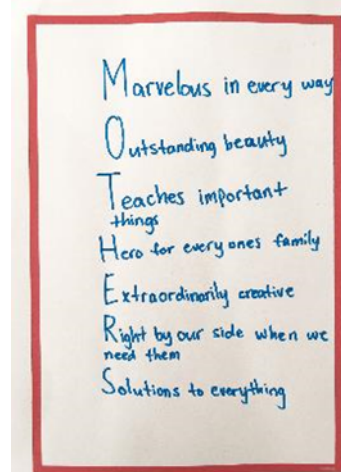 Marvelous in every way
Outstanding beauty
Teaches important
things
Hero for every ones family
Extraordinarily creative
Right by our side when we
need them
Solutions to everything